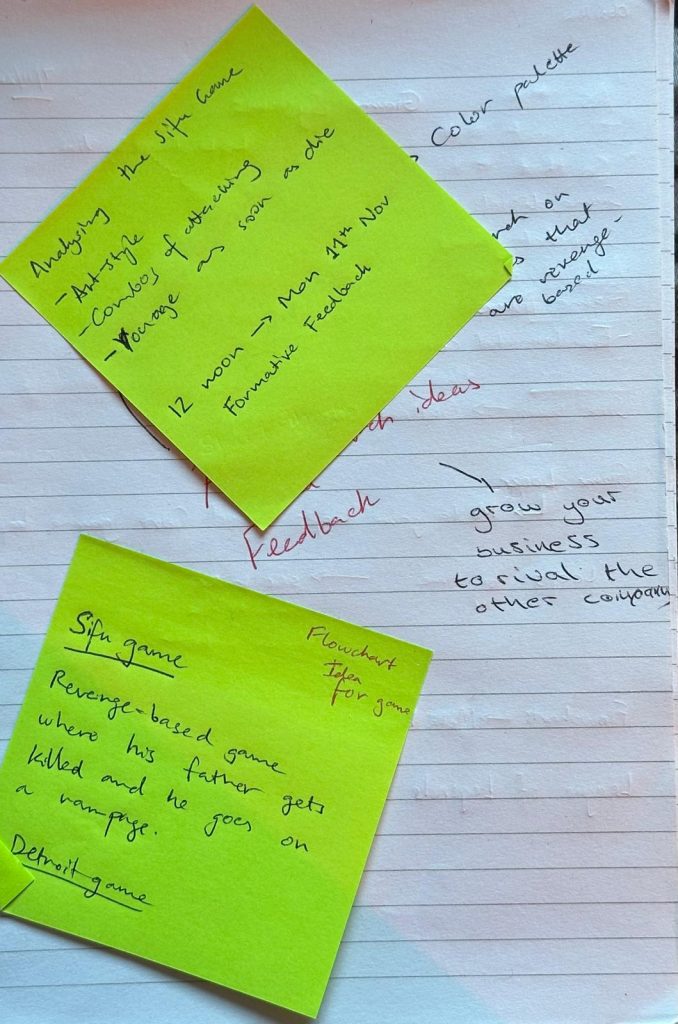 Analysing the Sifu Game
- Art-style
- Combos of attacking
- Your age as soon as die
12 noon → Mon 11th Nov
Formative Feedback
Color palette
on
that
are revenge-
based
ideas
Feedback
grow your
business
to rival the
other company
Sifu game
Flowchart
Idea
for game
Revenge-based game
where his father gets
killed and he goes on
a rampage.
Detroit game